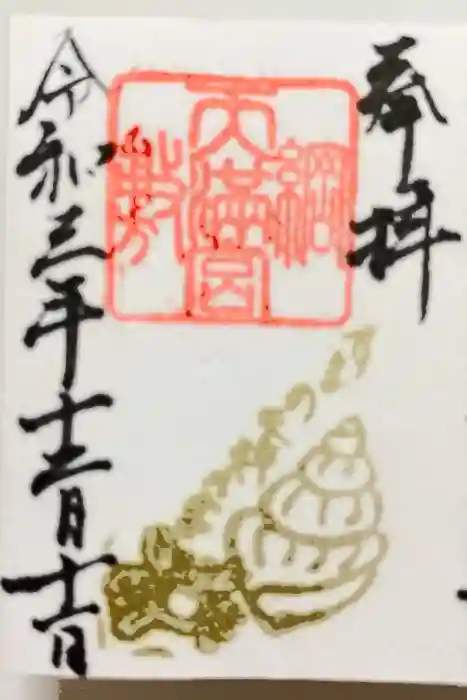 奉拝
綱
天満宮
敷
令和三年十二月十一日